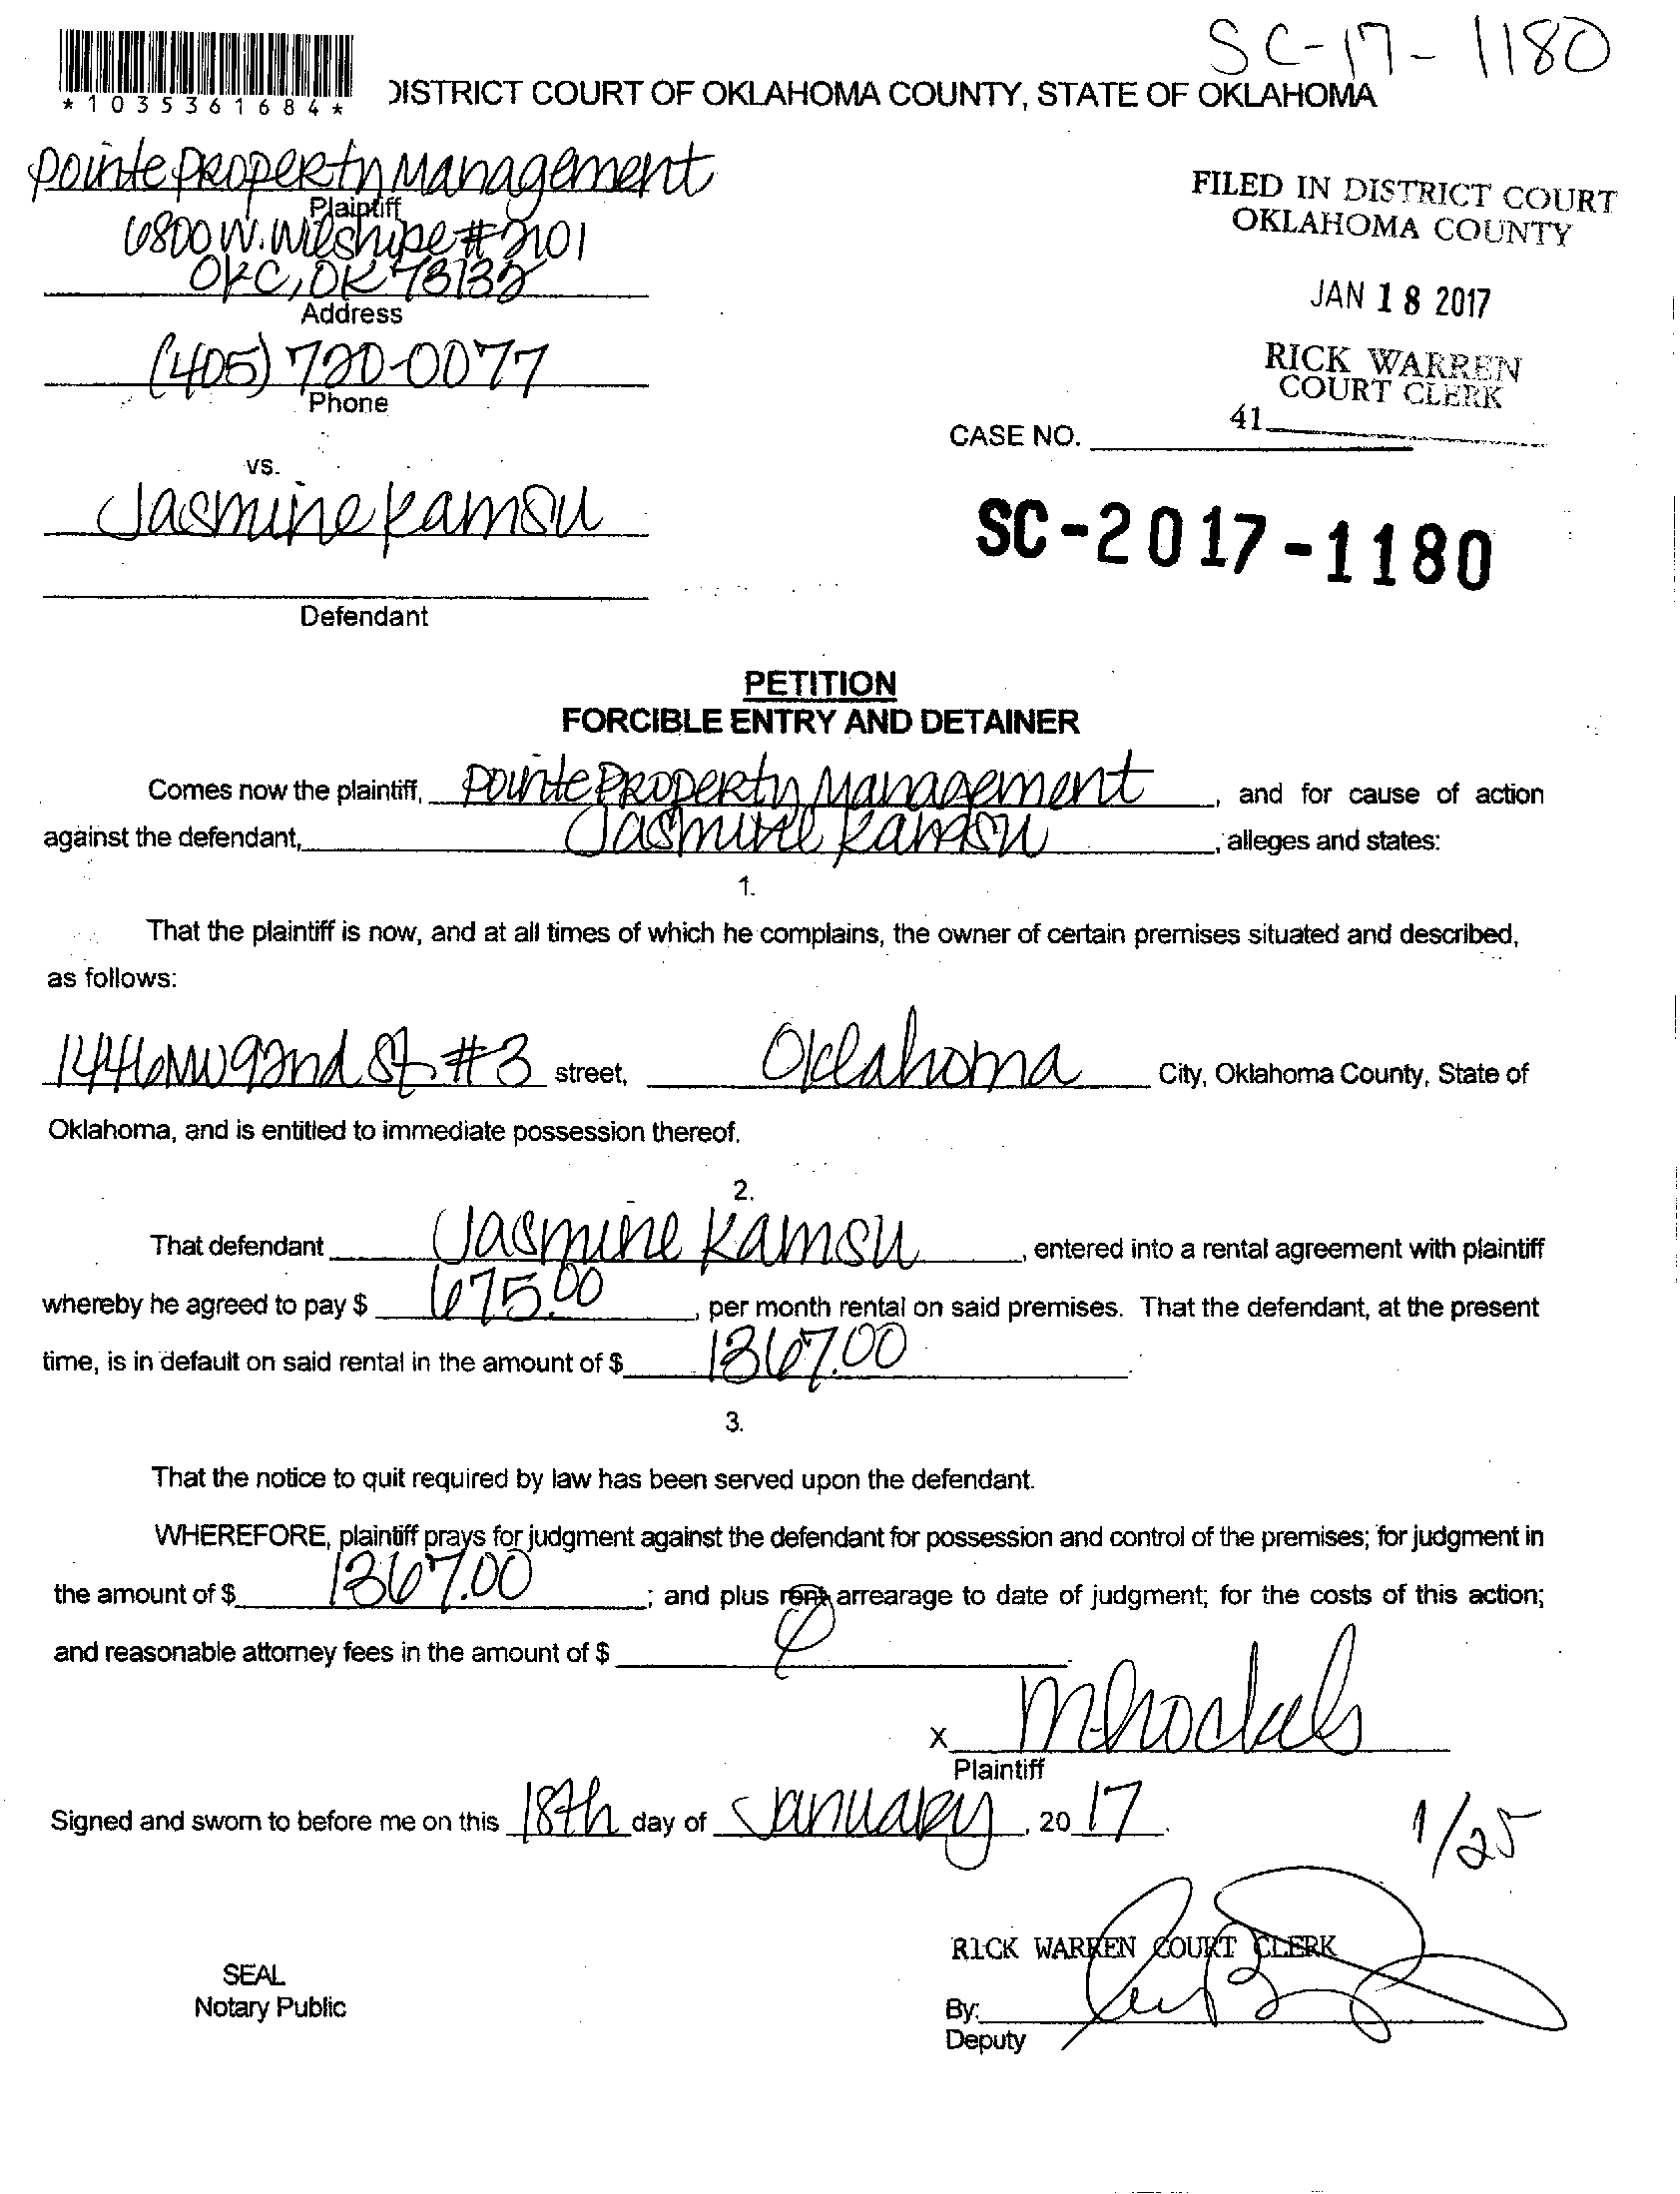 SC-17-1180
*1035361684*
DISTRICT COURT OF OKLAHOMA COUNTY, STATE OF OKLAHOMA
Pointe Property Management
Plaintiff
6800 W. Wilshire #2101
OKC, OK 73132
Address
(405) 720-0077
Phone
FILED IN DISTRICT COURT
OKLAHOMA COUNTY
JAN 18 2017
RICK WARREN
COURT CLERK
41
CASE NO.
vs.
Jasmine Kamsu
SC-2017-1180
Defendant
PETITION
FORCIBLE ENTRY AND DETAINER
Comes now the plaintiff, Pointe Property Management, and for cause of action
against the defendant, Jasmine Kamsu, alleges and states:
1.
That the plaintiff is now, and at all times of which he complains, the owner of certain premises situated and described,
as follows:
1446 NW 92nd St #3 street, Oklahoma City, Oklahoma County, State of
Oklahoma, and is entitled to immediate possession thereof.
2.
That defendant Jasmine Kamsu, entered into a rental agreement with plaintiff
whereby he agreed to pay $ 675.00, per month rental on said premises. That the defendant, at the present
time, is in default on said rental in the amount of $ 1367.00.
3.
That the notice to quit required by law has been served upon the defendant.
WHEREFORE, plaintiff prays for judgment against the defendant for possession and control of the premises; for judgment in
the amount of $ 1367.00; and plus rent arrearage to date of judgment; for the costs of this action;
and reasonable attorney fees in the amount of $
X
Plaintiff
Signed and sworn to before me on this 18th day of January, 2017.
1/25
RICK WARREN COURT CLERK
SEAL
Notary Public
By:
Deputy